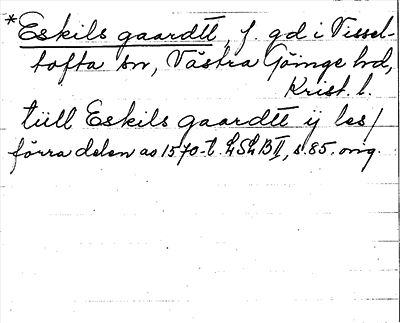 *Eskils gaardtt, f. gd i Vissel-
tofta sn, Västra Göinge hd,
Krist. l.
tiill Eskils gaardtt ij les/
förra delen av 1570-t. LSLB II, s. 85. orig.